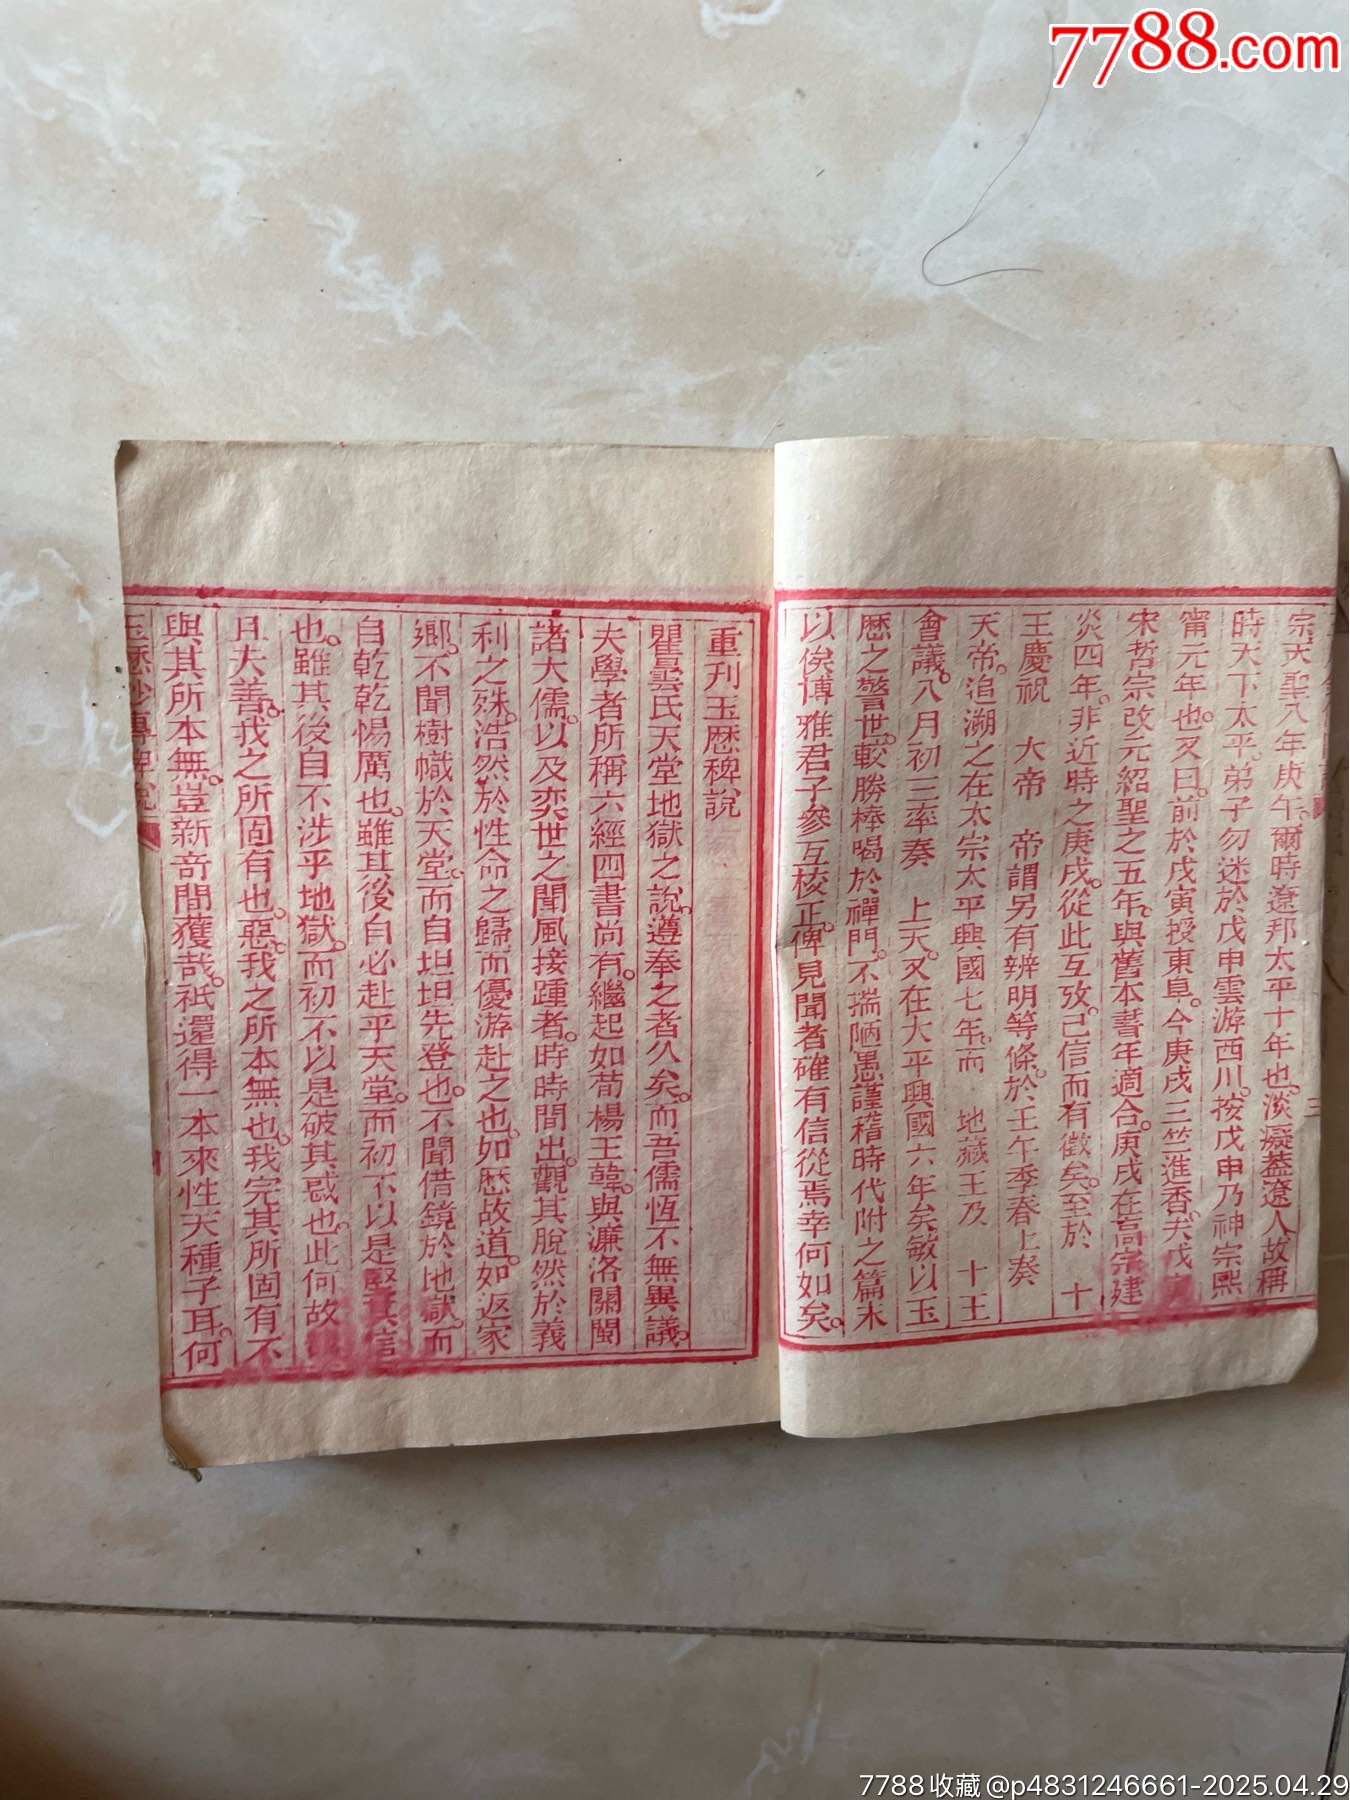 7788.com
宗天聖八年庚午。爾時遼邦太平十年也。淡癡蓋遼人故稱
時天下太平。弟子勿迷於戊申雲游西川。按戊申乃神宗熙
甯元年也。又曰。前於戊寅授東阜。今庚戌三竺進香。夫戊
宋哲宗改元紹聖之五年。與舊本蓍年適合。庚戌在高宗建
炎四年。非近時之庚戌。從此互攷。己信而有徵矣。至於 十
王慶祝 大帝 帝謂另有辨明等條。於壬午季春上奏
天帝。追溯之在太宗太平興國七年。而 地藏王及 十王
會議。八月初三率奏 上天。又在大平興國六年矣。敏以玉
歷之警世。較勝棒喝於禪門。不揣陋愚。謹稽時代附之篇末
以俟博雅君子參互核正。俾見聞者確有信從焉。幸何如矣。
重刊玉歷稗說
瞿曇氏天堂地獄之說。遵奉之者久矣。而吾儒恆不無異議。
夫學者所稱六經四書尚有。繼起如荀楊王韓。與濂洛關閩
諸大儒。以及奕世之聞風接踵者。時時間出。觀其脫然於義
利之殊。浩然於性命之歸。而優游赴之也。如歷故道。如返家
鄉。不聞樹幟於天堂。而自坦坦先登也。不聞借鏡於地獄。而
自乾乾惕厲也。雖其後自必赴乎天堂。而初不以是堅其信
也。雖其後自不涉乎地獄。而初不以是破其惑也。此何故
且夫善。我之所固有也。惡。我之所本無也。我完其所固有。不
與其所本無。豈新奇間獲哉。祇還得一本來性天種子耳。何
玉歷鈔傳稗說 一
7788收藏@p4831246661-2025.04.29